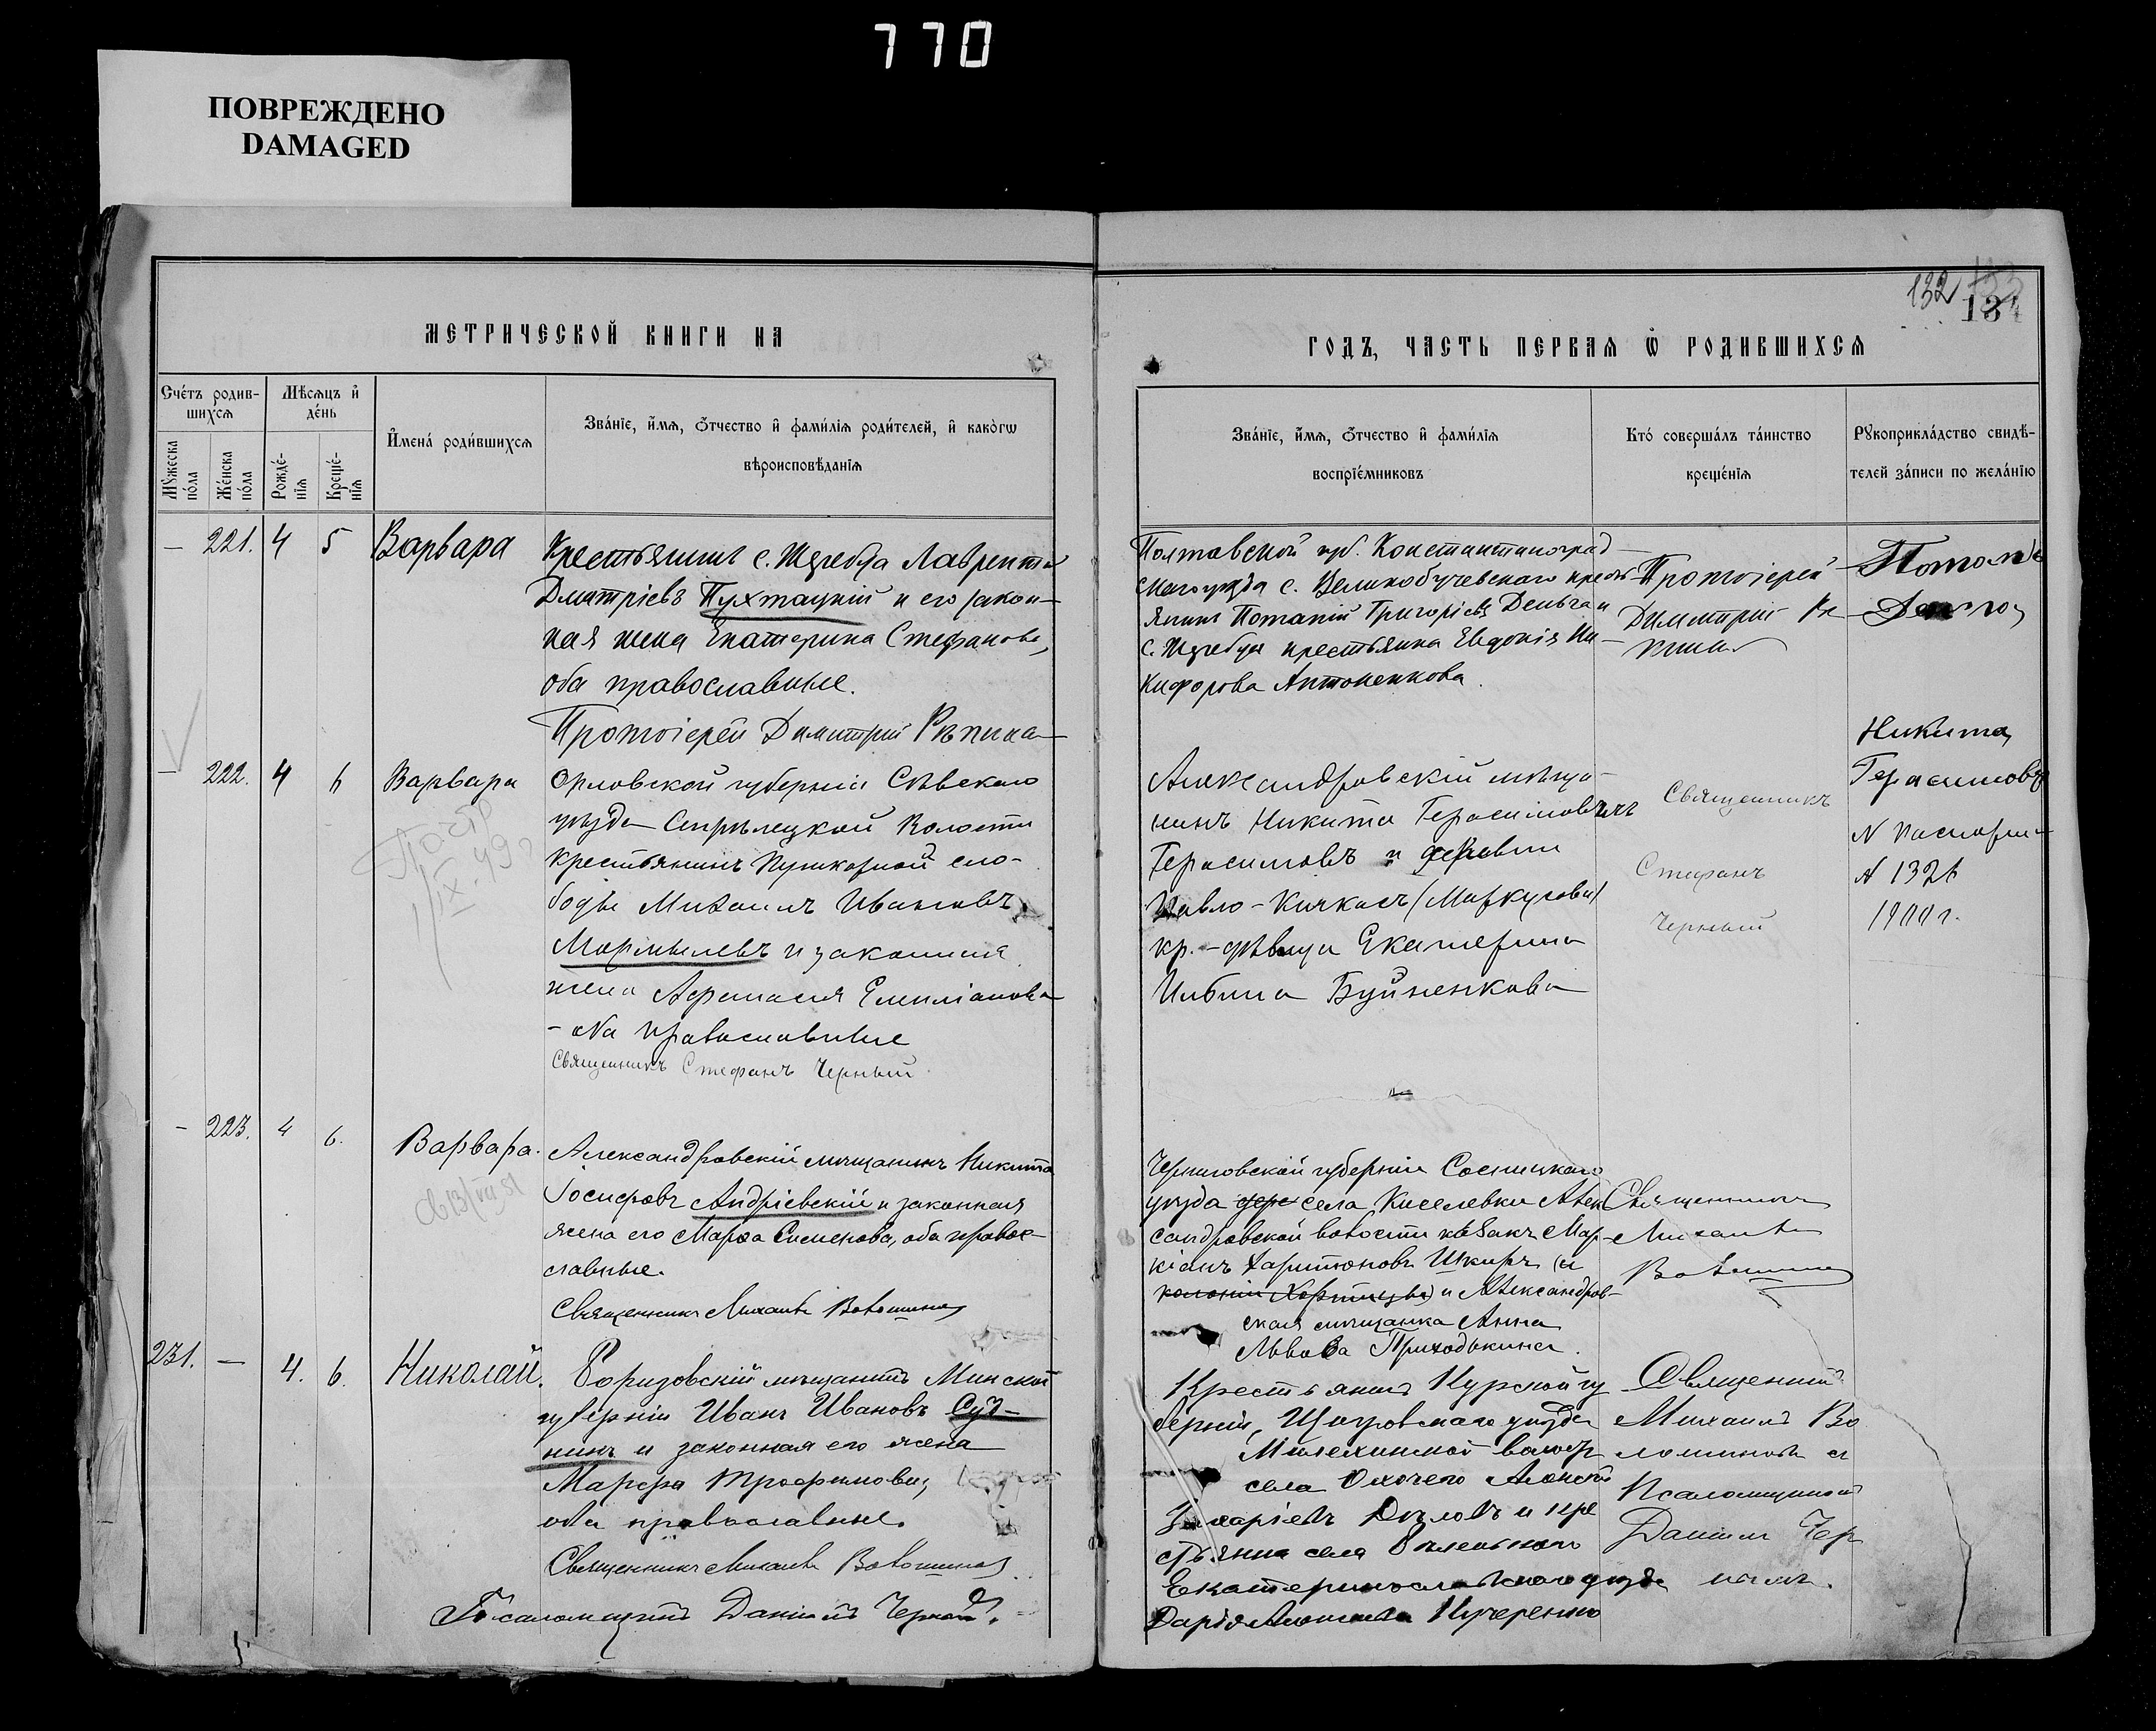 770
ПОВРЕЖДЕНО
DAMAGED
132
134
МЕТРИЧЕСКОЙ КНИГИ НА
ГОДЪ, ЧАСТЬ ПЕРВАЯ Ѡ РОДИВШИХСЯ
Счетъ родив-
шихся
Мѣсяцъ и
день
Мужеска
пола
Женска
пола
Рожде-
нія
Креще-
нія
Имена родившихся
Званіе, имя, отчество и фамилія родителей, и какогѡ
вѣроисповѣданія
Званіе, имя, отчество и фамилія
воспріемниковъ
Кто совершалъ таинство
крещенія
Рукоприкладство свидѣ-
телей записи по желанію
— 221. 4 5 Варвара
Крестьянинъ с. Лаврентій
Дмитріевъ Пухтацкій и его закон-
ная жена Екатерина Стефанова,
оба православные.
Протоіерей Димитрій Рѣпина
Полтавской губ. Константиноград-
скаго уѣзда с. Великобучевскаго крест-
янинъ Потапій Григоріевъ и
с. крестьянка Евдокія Ни-
кифорова Антоненкова.
Протоіерей
Димитрій Рѣ
пина
— 222. 4 6 Варвара
Орловской губерніи Сѣвскаго
уѣзда волости
крестьянинъ Пушкарной сло-
боды Михаилъ Ивановъ
Мармылевъ и законная
жена Афанасія Емиліанова
- оба православные
Священникъ Стефанъ Черный
Александровскій мѣща-
нинъ Никита Герасимовичъ
Герасимовъ и деревни
Павло-Кичкасъ (Маркусови)
кр.-дѣвица Екатерина
Ильина Буйненкова
Священникъ
Стефанъ
Черный
Никита
Герасимовъ
N паспорта
N 1321
1900 г.
- 223. 4 6. Варвара.
Александровскій мѣщанинъ Никита
Іосифовъ Андріевскій и законная
жена его Марѳа Сименова, оба правос-
лавные.
Священникъ Михаилъ Волошинов
Черниговской губерніи Сосницкаго
уѣзда дер села Киселевки Алек
сандровской волости козакъ Мар-
кіанъ Харитоновъ Шкиръ (и
колоніи Хортицы) и Александров-
ская мѣщанка Анна
Львова Приходькина.
Священникъ
Михаилъ
Волошинов
231. — 4. 6. Николай.
Борисовскій мѣщанинъ Минской
губерніи Иванъ Ивановъ Суд-
нинъ и законная его жена
Марфа Трофимова,
оба православные.
Священникъ Михаилъ Волошинов
Псаломщикъ Даніилъ Черный.
Крестьянинъ Курской гу
берніи, Щигровскаго уѣзда
Милехинской волост
села Охочего
Захаріевъ и кре
стьянка села
Екатеринославскаго уѣзда
Дарія Кучеренко
Священникъ
Михаилъ Во
лошиновъ и
Псаломщикъ
Даніилъ Чер
ный.